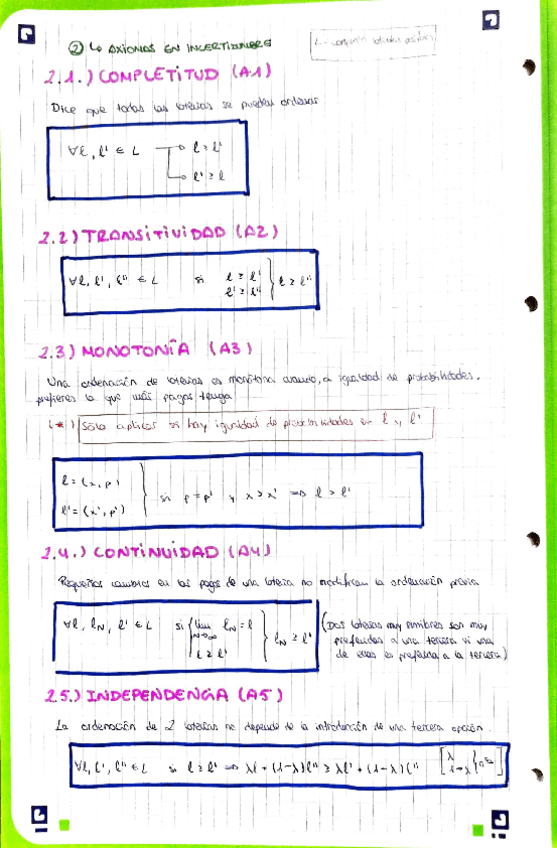 ② ↳ AXIOMAS EN INCERTIDUMBRE
L = conjunto loterías posibles
2.1.) COMPLETITUD (A1)
Dice que todas las loterías se pueden ordenar
∀l, l' ∈ L → l ≥ l'
→ l' ≥ l
2.2) TRANSITIVIDAD (A2)
∀l, l', l'' ∈ L si l ≥ l' } l ≥ l''
l' ≥ l''
2.3) MONOTONÍA (A3)
Una ordenación de loterías es monótona cuando, a igualdad de probabilidades,
prefieres la que más pagos tenga
(*) Solo aplicar si hay igualdad de probabilidades en l y l'
l = (x, p) } si p = p' y x > x' ⇒ l > l'
l' = (x', p')
2.4.) CONTINUIDAD (A4)
Pequeños cambios en los pagos de una lotería no modifican la ordenación previa
∀l, l_N, l' ∈ L si { lim l_N = l } l_N ≥ l'
N→∞
l ≥ l'
(Dos loterías muy similares son muy
preferidas a una tercera si una
de ellas es preferida a la tercera)
2.5.) INDEPENDENCIA (A5)
La ordenación de 2 loterías no depende de la introducción de una tercera opción.
∀l, l', l'' ∈ L si l ≥ l' ⇒ λl + (1-λ)l'' ≥ λl' + (1-λ)l'' [λ
1-λ }